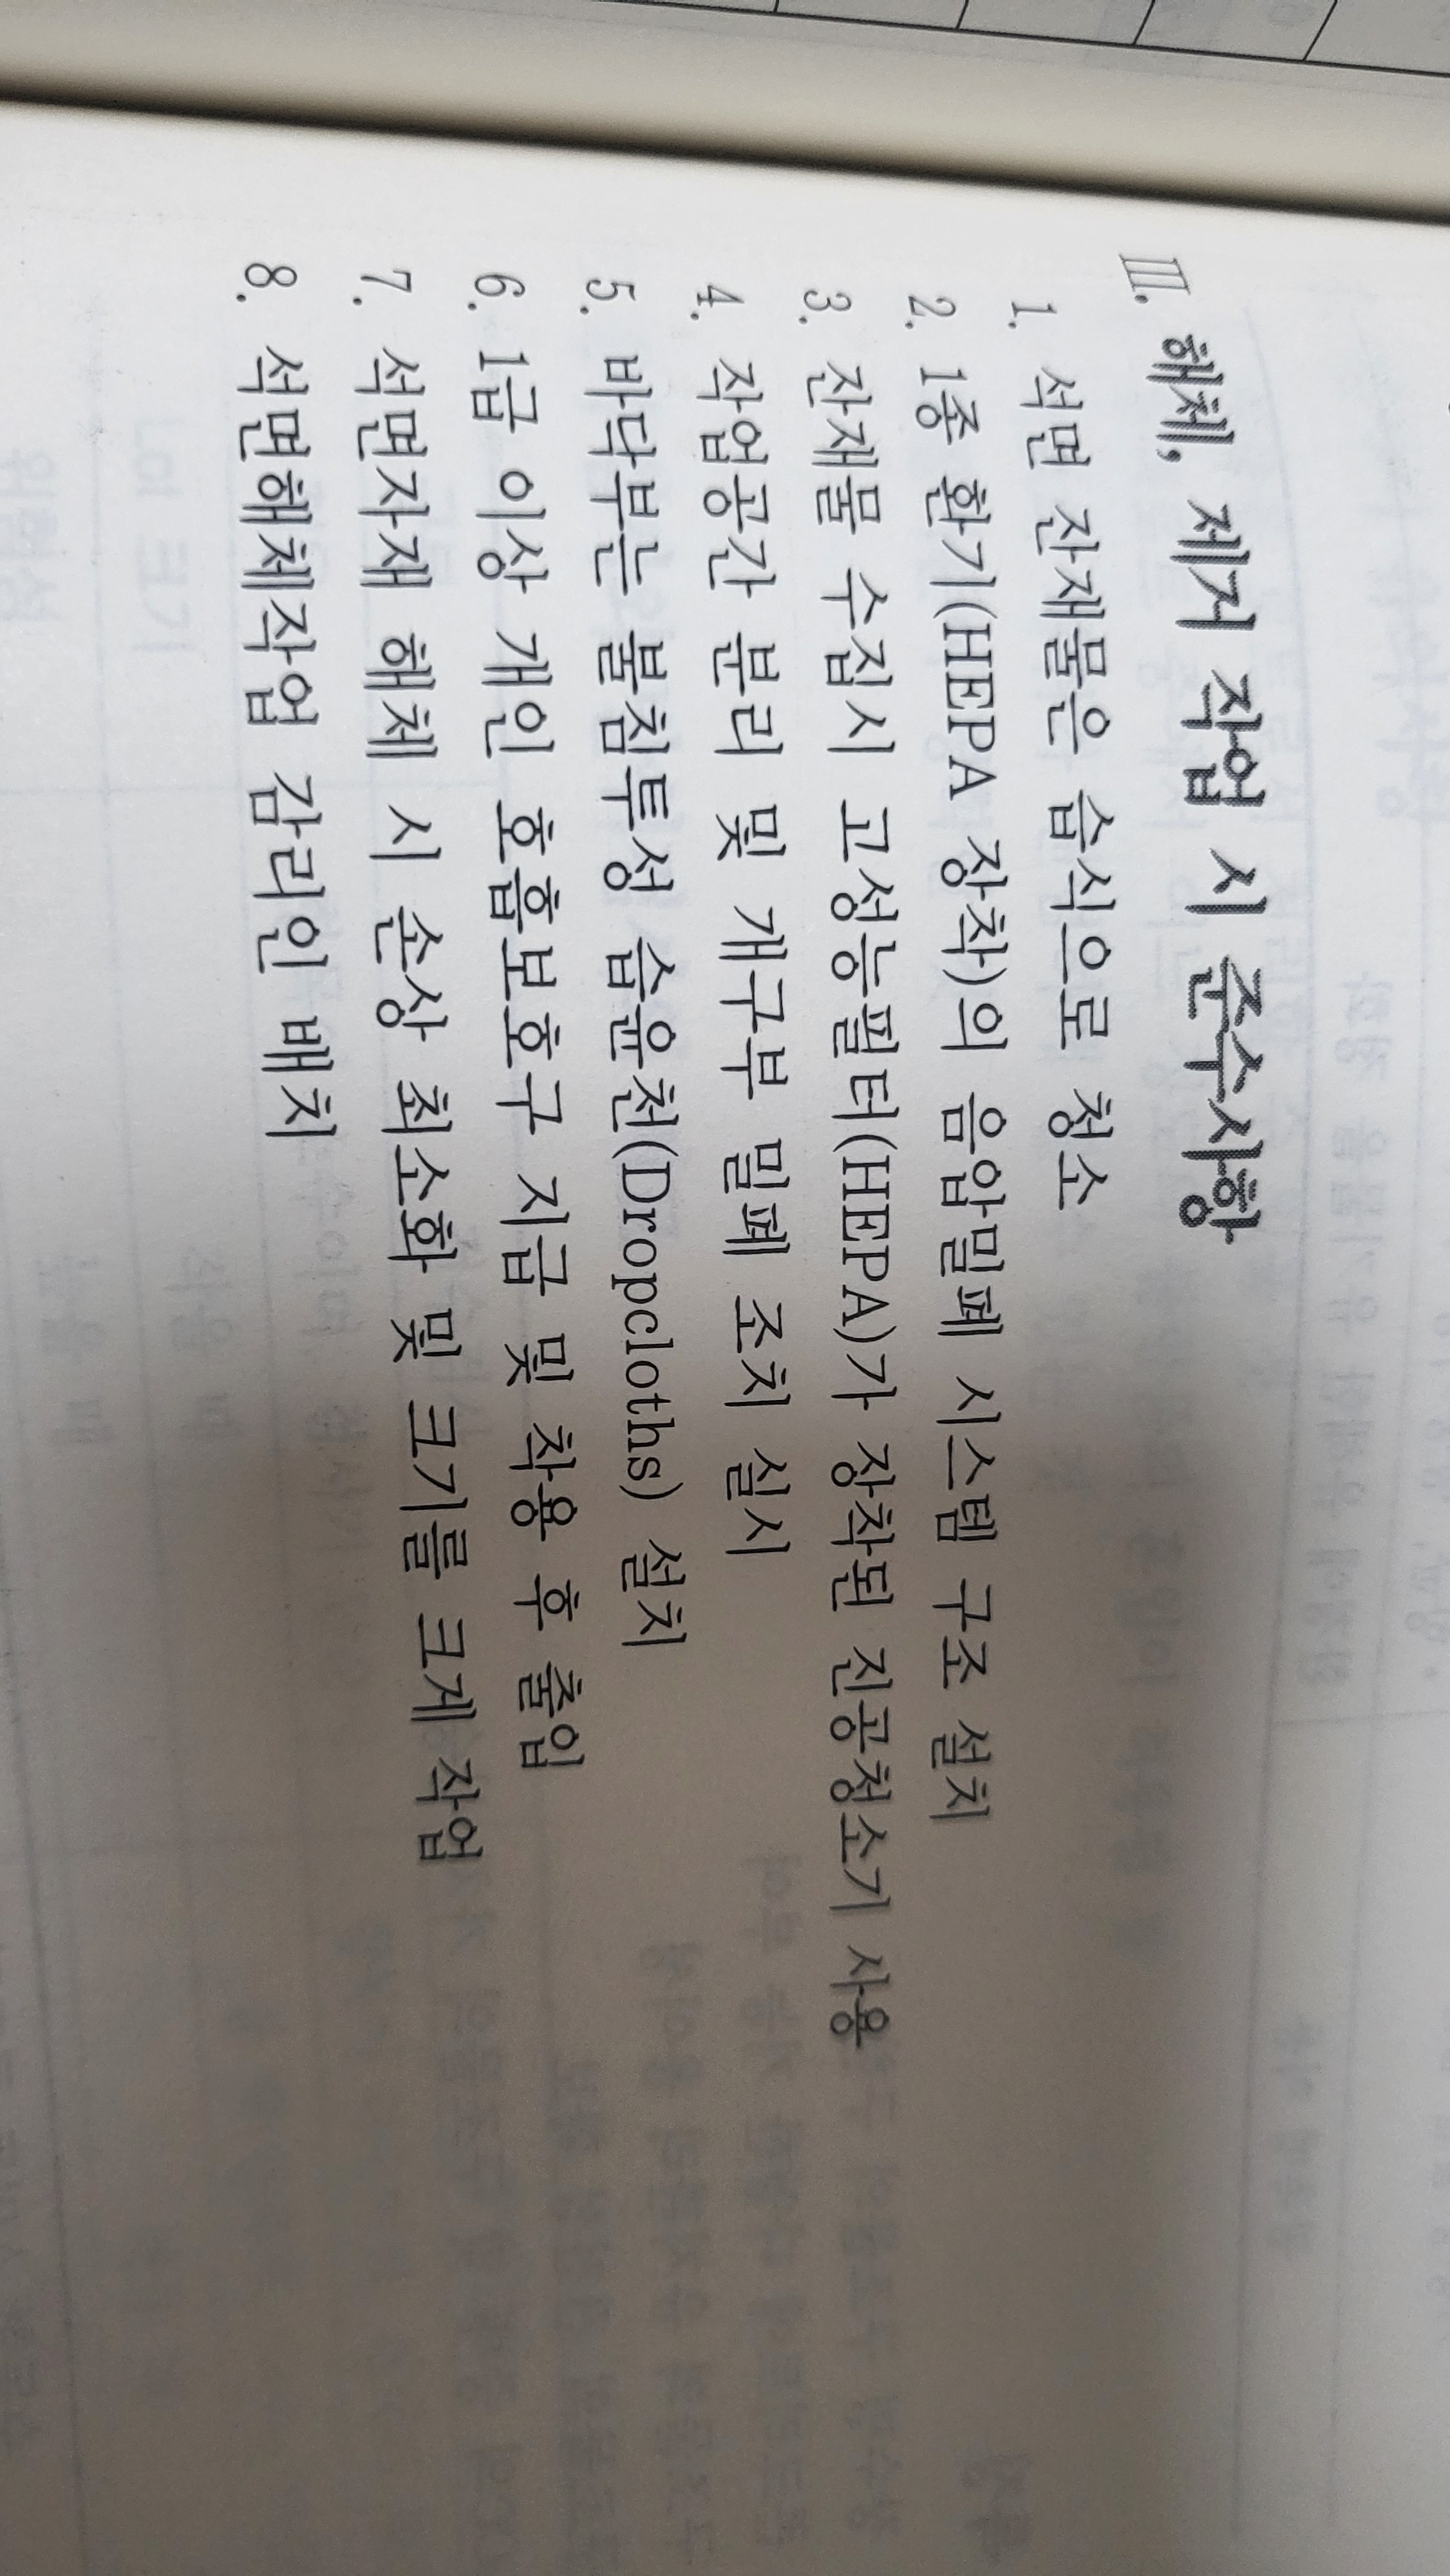 Ⅲ. 해체, 제거 작업 시 준수사항
1. 석면 잔재물은 습식으로 청소
2. 1종 환기(HEPA 장착)의 음압밀폐 시스템 구조 설치
3. 잔재물 수집시 고성능필터(HEPA)가 장착된 진공청소기 사용
4. 작업공간 분리 및 개구부 밀폐 조치 실시
5. 바닥부는 불침투성 습윤천(Dropcloths) 설치
6. 1급 이상 개인 호흡보호구 지급 및 착용 후 출입
7. 석면자재 해체 시 손상 최소화 및 크기를 크게 작업
8. 석면해체작업 감리인 배치